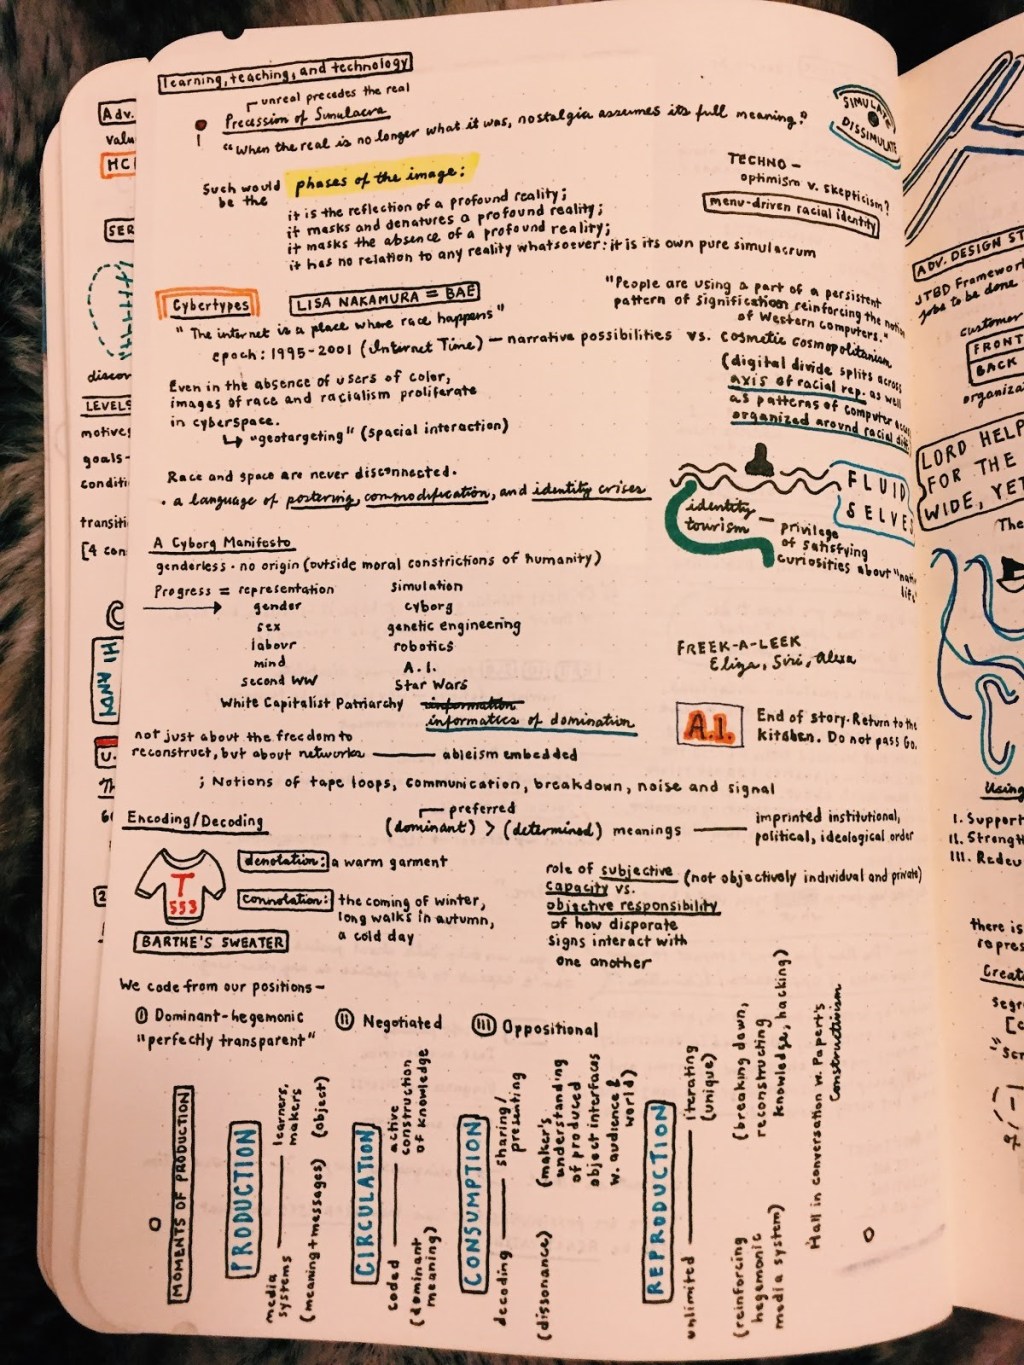 learning, teaching, and technology
unreal precedes the real
Precession of Simulacra
"When the real is no longer what it was, nostalgia assumes its full meaning?
SIMULATE
DISSIMULATE
Such would be the
phases of the image:
it is the reflection of a profound reality;
it masks and denatures a profound reality;
it masks the absence of a profound reality;
it has no relation to any reality whatsoever: it is its own pure simulacrum
TECHNO -
optimism v. skepticism?
menu-driven racial identity
Cybertypes
LISA NAKAMURA = BAE
"The internet is a place where race happens"
epoch: 1995-2001 (Internet Time) — narrative possibilities vs. cosmetic cosmopolitanism
"People are using a part of a persistent
pattern of signification reinforcing the notion
of Western computers."
(digital divide splits across
axis of racial rep. as well
as patterns of computer access
organized around racial
Even in the absence of users of color,
images of race and racialism proliferate
in cyberspace.
↳ "geotargeting" (spacial interaction)
Race and space are never disconnected.
• a language of posturing, commodification, and identity crises
FLUID
SELVES
identity
tourism — privilege
of satisfying
curiosities about "native
life"
A Cyborg Manifesto
genderless • no origin (outside moral constrictions of humanity)
Progress = representation simulation
gender cyborg
sex genetic engineering
labour robotics
mind A.I.
second WW Star Wars
White Capitalist Patriarchy information
informatics of domination
FREEK-A-LEEK
Eliza, Siri, Alexa
A.I.
End of story. Return to the
kitchen. Do not pass Go.
not just about the freedom to
reconstruct, but about networks — ableism embedded
; Notions of tape loops, communication, breakdown, noise and signal
Encoding/Decoding
preferred
(dominant) > (determined) meanings — imprinted institutional,
political, ideological order
T
553
BARTHE'S SWEATER
denotation: a warm garment
connotation: the coming of winter,
long walks in autumn,
a cold day
role of subjective (not objectively individual and private)
capacity vs.
objective responsibility
of how disparate
signs interact with
one another
We code from our positions-
I Dominant-hegemonic
"perfectly transparent"
II Negotiated
III Oppositional
MOMENTS OF PRODUCTION
PRODUCTION
media systems — learners, makers
(meaning + messages) (object)
CIRCULATION
coded — active construction of knowledge
(dominant meaning)
CONSUMPTION
decoding — sharing/presenting
(dissonance) (maker's understanding of produced object interfaces w. audience & world)
REPRODUCTION
unlimited — iterating (unique)
(reinforcing hegemonic media system) (breaking down, reconstructing knowledge, hacking)
Hall in conversation w. Papert's Constructivism
Adv.
valu
SER
discor
LEVELS
motives
goals-
conditi
transiti
[4 con
HI ANDY
ADV. DESIGN ST
JTBD Framework
jobs to be done
customer
FRONT
BACK
organiza
LORD HELP
FOR THE
WIDE, YET
The
Using
I. Support
II. Strength
III. Redeu
there is
repres
Creat
segr